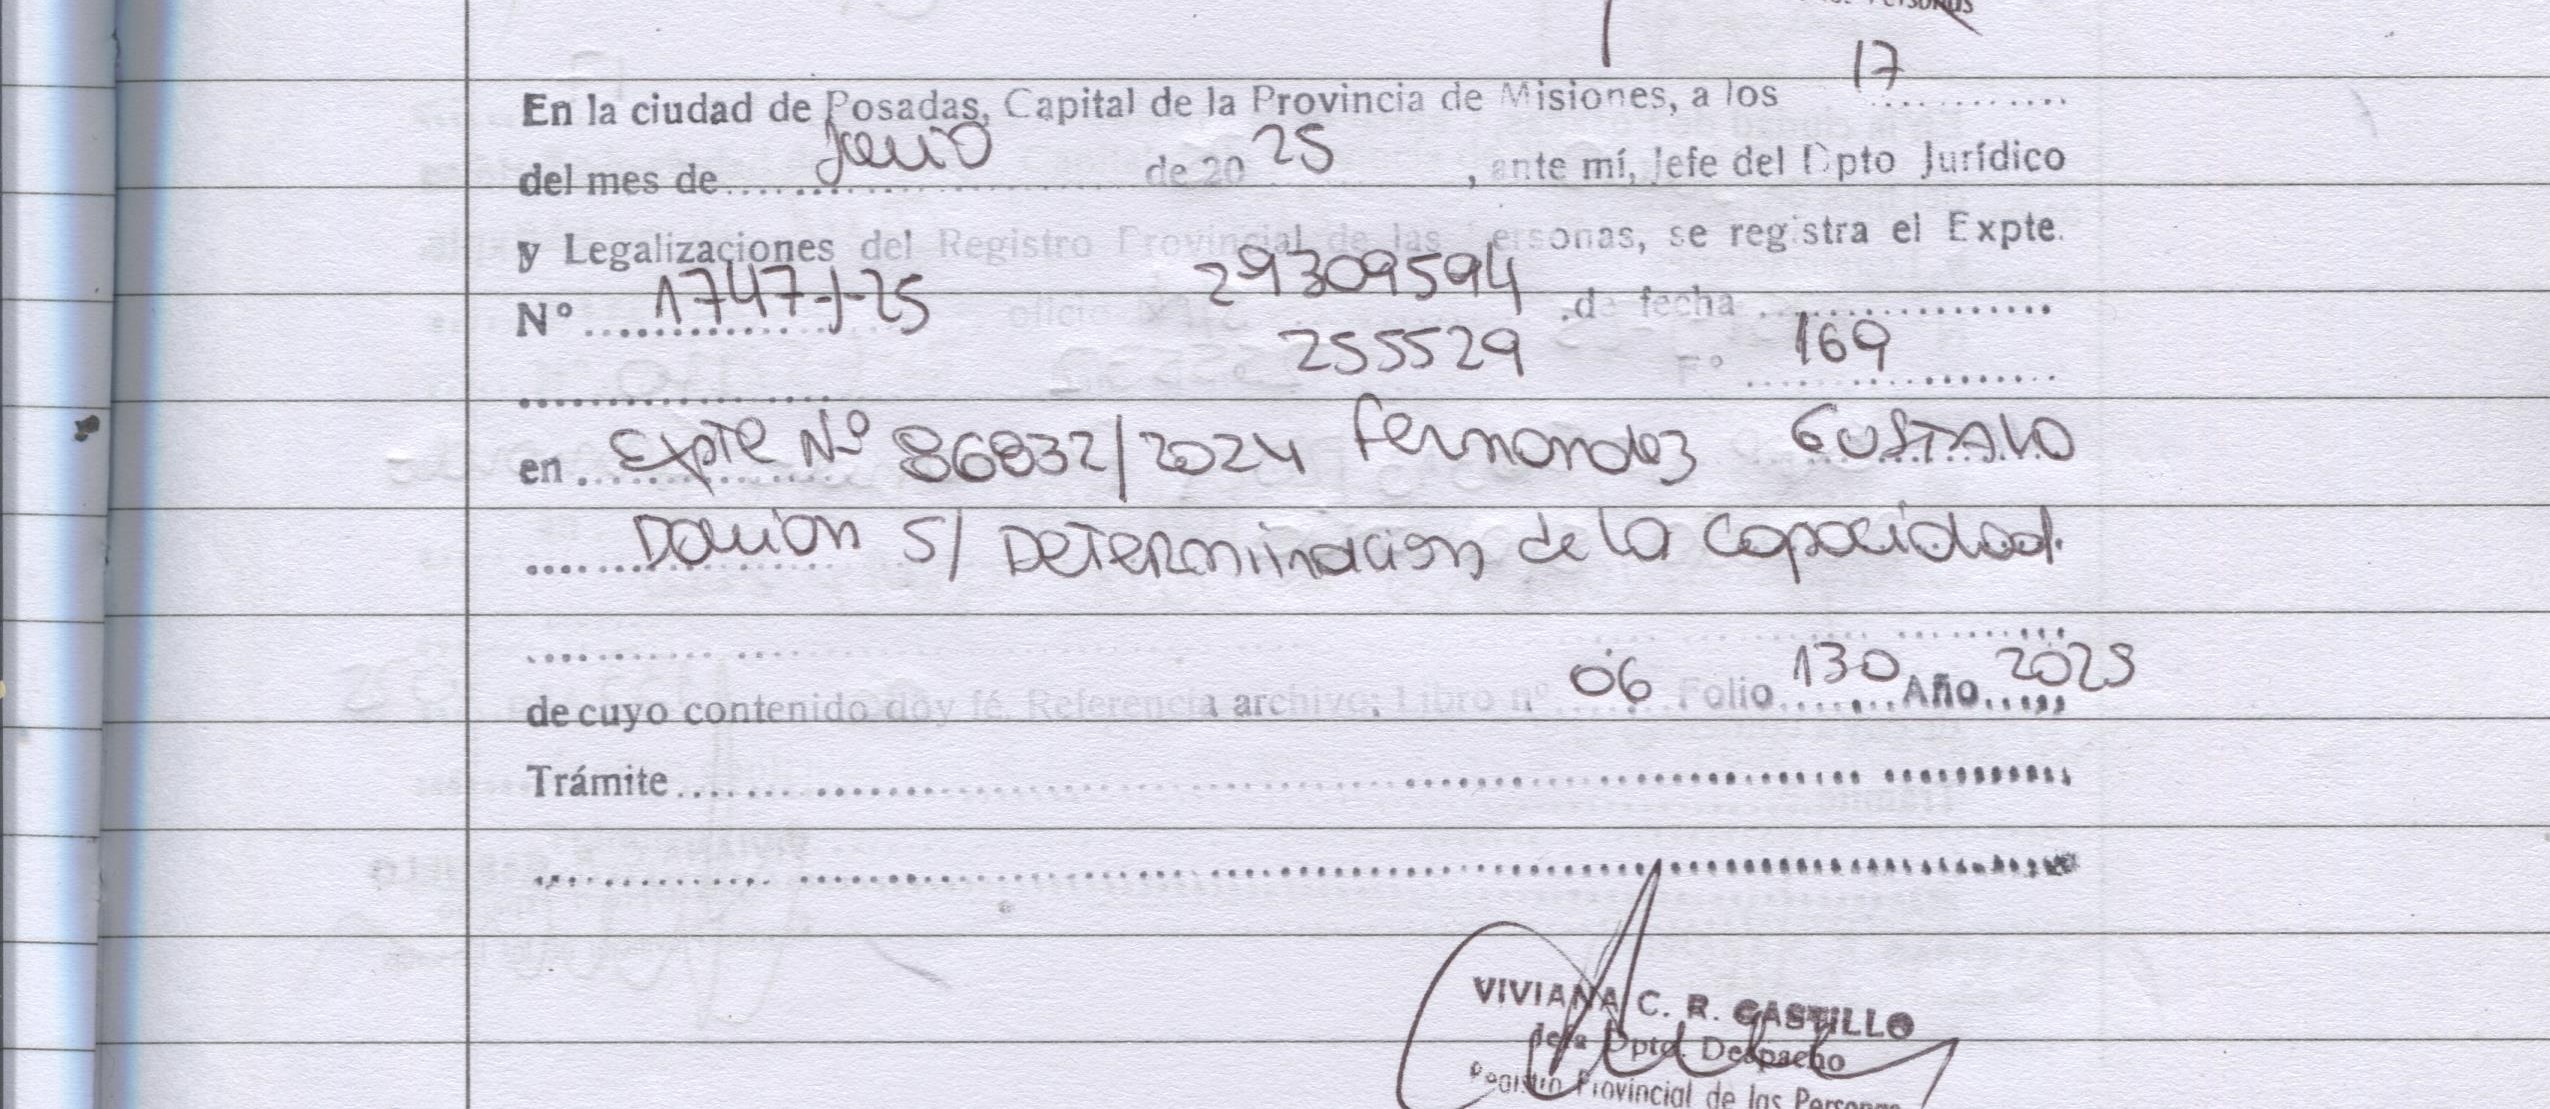 Personas
17
En la ciudad de Posadas, Capital de la Provincia de Misiones, a los ............
del mes de ........ Junio de 20 25 , ante mí, Jefe del Dpto Jurídico
y Legalizaciones del Registro Provincial de las Personas, se registra el Expte.
Nº ........ 1747-J-25 oficio 293099594 de fecha ................
255529 Fº 169
en Expte Nº 86832/2024 Fernandez GUSTAVO
Damian S/ Determinacion de la Capacidad.
de cuyo contenido doy fé. Referencia archivo: Libro nº 06 Folio 130 Año 2025
Trámite ........................
VIVIANA C. R. CASTILLO
Jefa Dpto. Despacho
Registro Provincial de las Personas